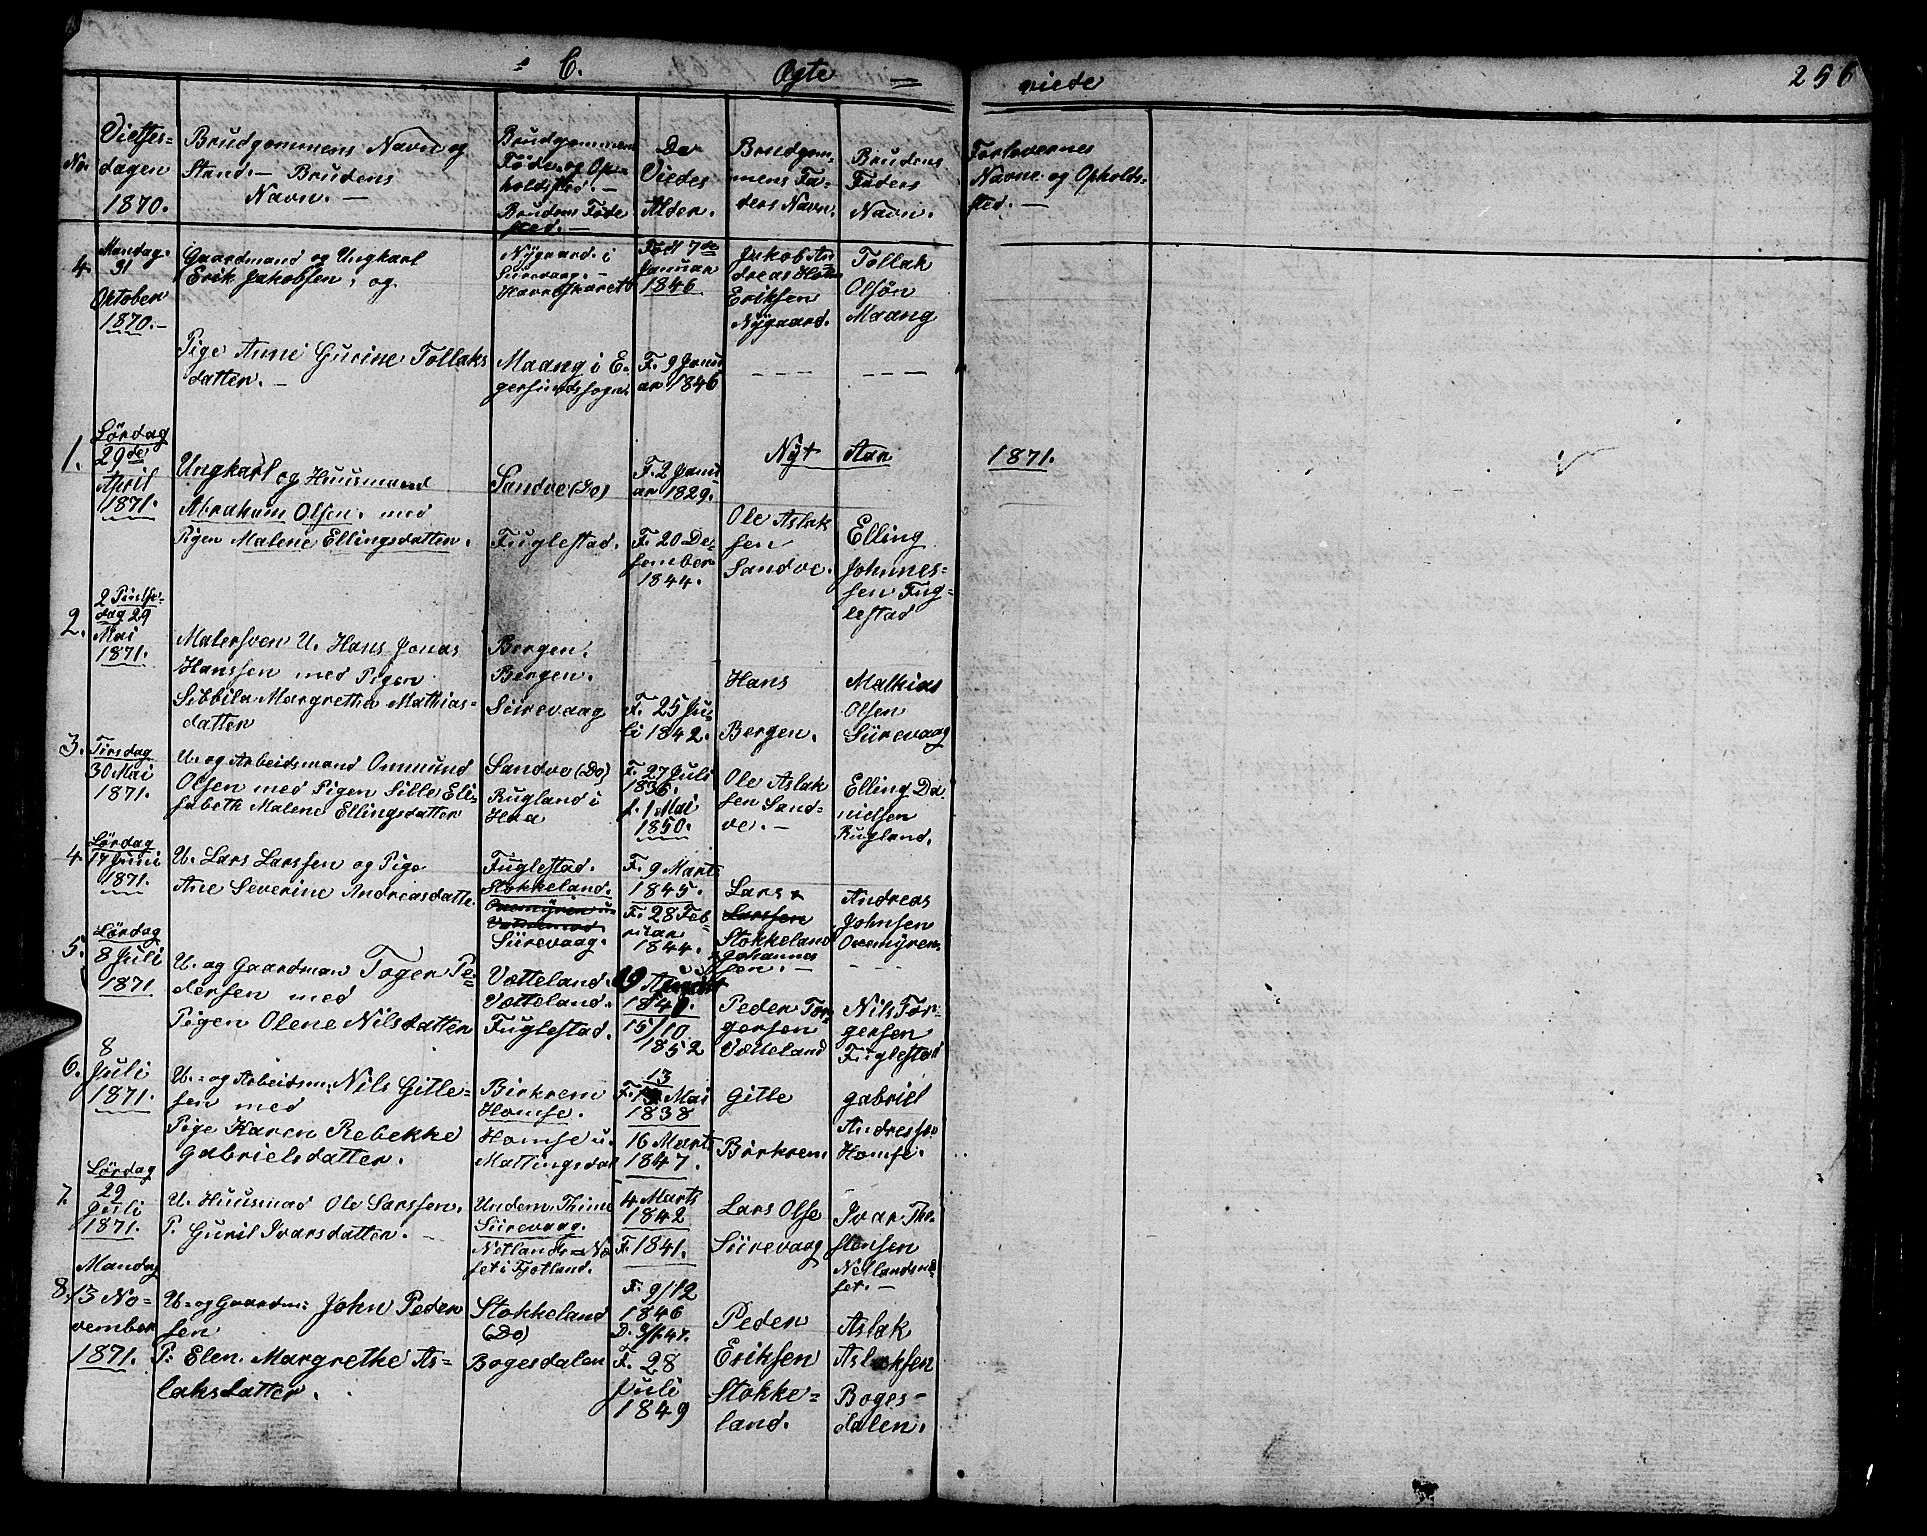 C. Ægte = viede 256
No.
Vielses=
dagen
1870.
Brudgommens Navn og
Stand. — Brudens
Navn. —
Brudgommens
Føde- og Op=
holdssted. —
Brudens Føde
sted. —
De
Viedes
Alder.
Brudgom=
mens Fa=
ders Navn.
Brudens
Faders
Navn.
Forlovernes
Navne og Opholds=
sted. —
4.
Mandag
31
October
1870. —
Gaardmand og Ungkarl
Erik Jakobsen, og
Nygaard i
Siirevaag. —
Havreskarett
Født 7de
Januar
1846
Jakob An
dreas Holm
Eriksen
Nygaard.
Tollak
Olsøn
Maang
Pige Anne Gurine Tollaks
datter. —
Maang i E-
gersundssogn.
F. 9 Janu
ar 1846
— — —
— — —
Nyt Aar 1871.
1.
Lørdag
29de
April
1871.
Ungkarl og Huusmand
Abraham Olsen. med
Pigen Malene Ellingsdatter.
Sandve (Do)
Fuglestad.
F. 2 Janu
ar 1829.
F. 20 De=
sember
1844.
Ole Aslak
sen
Sandve.
Elling
Johnnes=
sen Fug=
lestad
2.
2 Pintse-
dag 29
Mai
1871.
Malersven U. Hans Jonas
Hanssen med Pigen
Sibbila Margrethe Mathias=
datter
Bergen.
Bergen.
Siirevaag
F. 25 Ju=
li 1842.
Hans
Bergen.
Mathias
Olsen
Siirevaag
3.
Tirsdag
30 Mai
1871.
U. og Arbeidsmand Ommund
Olsen med Pigen Sille Eli=
sabeth Malene Ellingsdatter
Sandve (Do)
Rugland i
Haa
F. 27 Juli
1836.
f. 1 Mai
1850.
Ole Aslak
sen Sand=
ve. —
Elling Da
nielsen
Rugland.
4
Lørdag
17 Juni
1871.
U. Lars Larssen og Pige
Ane Severine Andreasdatte
Fuglestad.
Stokkeland.
Siirevaag.
F. 9 Marts
1845.
F. 28 Feb=
ruar
1844.
Lars
Larssen
Stokkeland
Johannes
sen. —
Andreas
Johnsen
Oremyren
— — —
5.
Lørdag
8 Juli
1871
U. og Gaardman Toger Pe=
dersen med
Pigen Olene Nilsdatter
Vætteland.
Vætteland.
Fuglestad.
19 August
1840.
15/10
1852
Peder Tor
gersen
Vætteland
Nils Tor=
gersen
Fuglestad
6.
8
Juli
1871.
U. og Arbeidsm: Nils Gitle=
sen med
Pige Karen Rebekke
Gabrielsdatter.
Birkrem
Homse.
Homse u.
Mattingsdal
13
F. Mai
1838
16 Marts
1847.
Gitle
Birkrem
Gabriel
Andressen
Homse.
7.
Lørdag
22
Juli
1871.
U. Huusmad Ole Larssen.
P. Guril Ivarsdatter. —
Undem. Thime
Siirevaag.
Netlands=Næ
set i Fjotland.
4 Marts
1842
F. 1841.
Lars Olse
Siirevaag
Ivar Tho-
stensen
Netlandsnæ
set. —
8.
Mandag
13 No=
vember
1871.
U. og Gaardm: John Peder
sen
P. Elen Margrethe As=
laksdatter.
Stokkeland
(Do)
Bogesdalen
F. 9/12
1846
D. 3/1 47.
F. 28
Juli
1849
Peder
Eriksen
Stokke=
land.
Aslak
Aslaksen
Boges=
dalen.